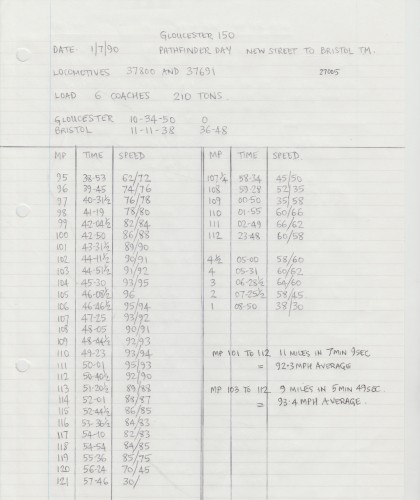 GLOUCESTER 150
DATE 1/7/90 PATHFINDER DAY NEW STREET TO BRISTOL TM.
LOCOMOTIVES 37800 AND 37691 27005
LOAD 6 COACHES 210 TONS.
GLOUCESTER 10-34-50 0
BRISTOL 11-11-38 36-48
MP TIME SPEED MP TIME SPEED.
95 38-53 62/72 107¼ 58-34 45/50
96 39-45 74/76 108 59-28 52/35
97 40-31½ 76/78 109 00-50 35/58
98 41-19 78/80 110 01-55 60/66
99 42-04½ 82/84 111 02-49 66/62
100 42-50 86/88 112 23-48 60/58
101 43-31½ 89/90
102 44-11½ 90/91 4½ 05-00 58/60
103 44-51½ 91/92 4 05-31 60/62
104 45-30 93/95 3 06-28½ 64/60
105 46-08½ 96 2 07-25½ 58/45
106 46-46½ 95/94 1 08-50 38/30
107 47-25 93/92
108 48-05 90/91
109 48-44½ 92/93
110 49-23 93/94 MP 101 TO 112 11 MILES IN 7MIN 9SEC
111 50-01 95/93 = 92.3MPH AVERAGE
112 50-40½ 92/90
113 51-20½ 89/88 MP 103 TO 112 9 MILES IN 5MIN 49SEC.
114 52-01 88/87 = 93.4 MPH AVERAGE.
115 52-44½ 86/85
116 53-36½ 84/83
117 54-10 82/83
118 54-54 84/85
119 55-36 85/75
120 56-24 70/45
121 57-46 30/